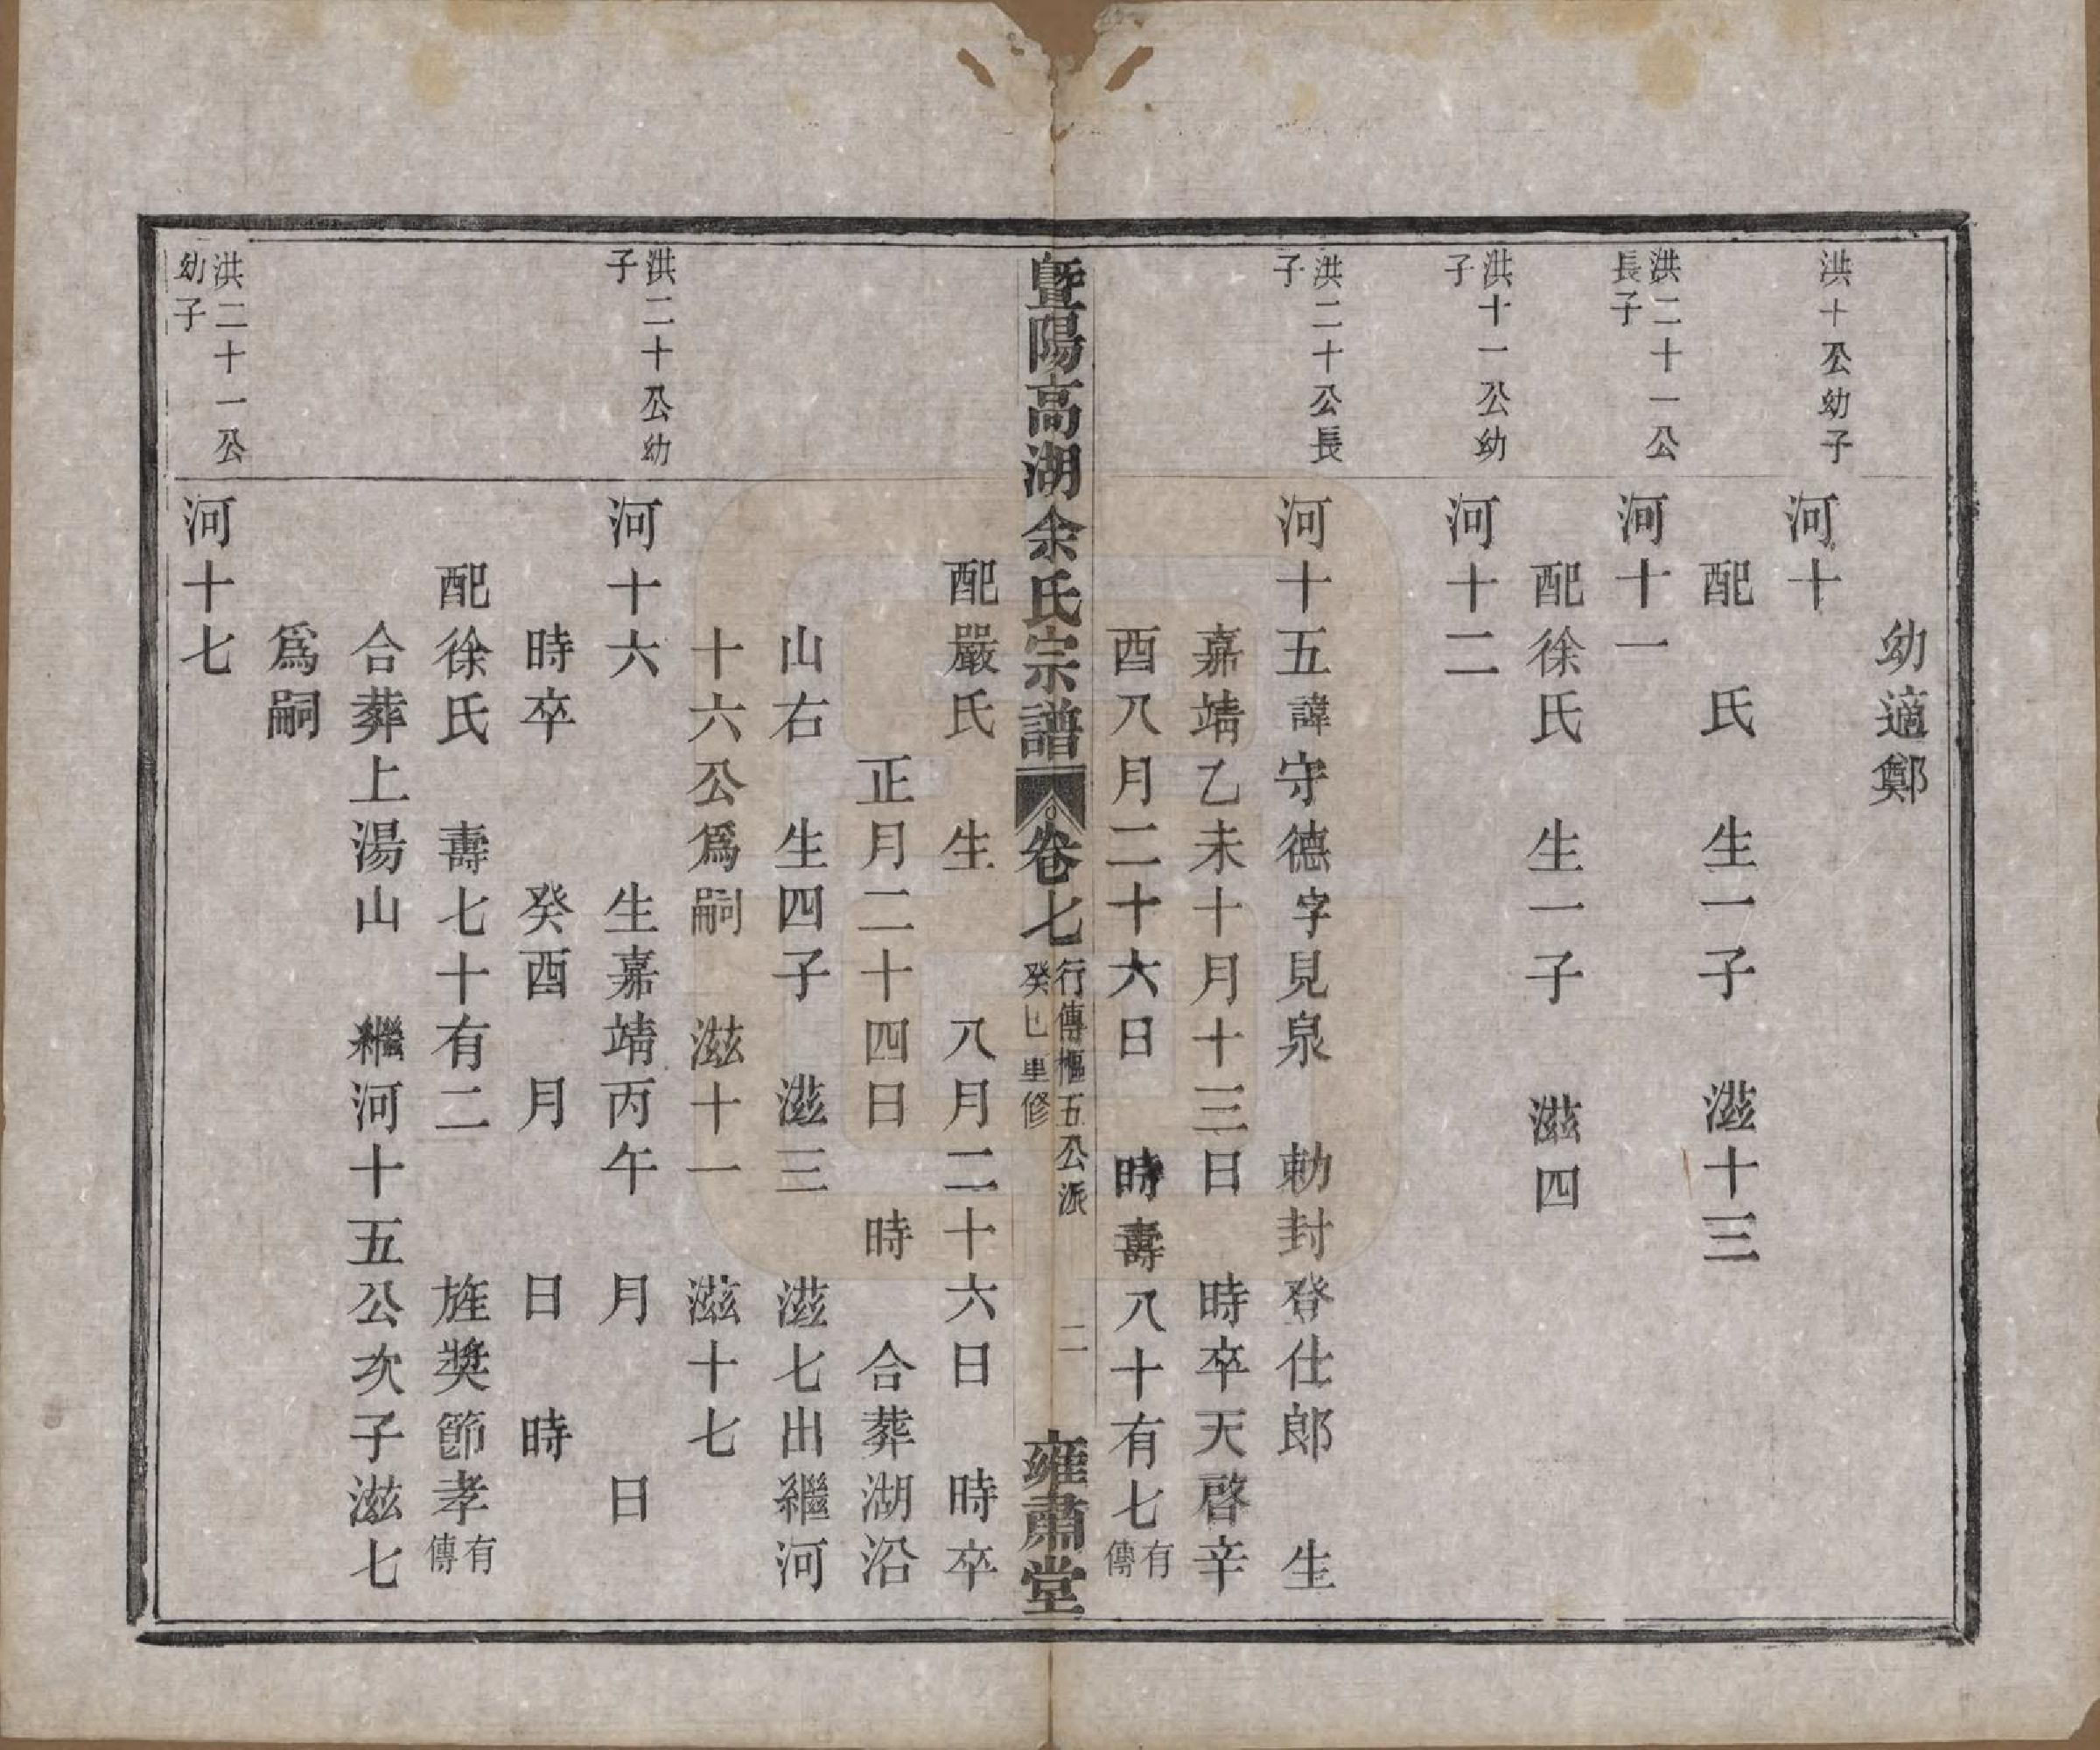 幼適鄭
洪十公幼子
河十
配　氏　生一子　滋十三
洪二十一公長子
河十一
配徐氏　生一子　滋四
洪十一公幼子
河十二
洪二十公長子
河十五諱守德字見泉　勅封登仕郎　生
嘉靖乙未十月十三日　時卒天啓辛
酉八月二十六日　時壽八十有七有傳
暨陽高湖余氏宗譜　卷七　行傳樞五公派　癸巳重修　二　雍肅堂
配嚴氏　生　八月二十六日　時卒
正月二十四日　時　合葬湖沿
山右　生四子　滋三　滋七出繼河
十六公爲嗣　滋十一　滋十七
洪二十公幼子
河十六　生嘉靖丙午　月　日
時卒　癸酉　月　日　時
配徐氏　壽七十有二　旌獎節孝有傳
合葬上湯山　繼河十五公次子滋七
爲嗣
洪二十一公幼子
河十七